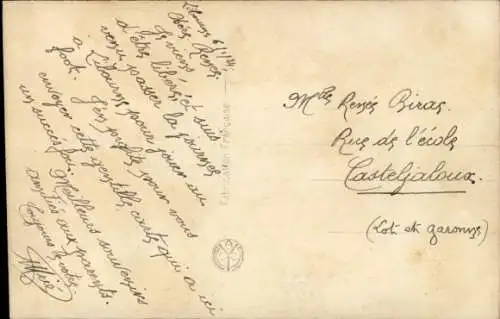 Libourne 6/1/41
Chère Renée
Je viens d'être libéré et suis
venu passer la journée
à Libourne pour jouer au
foot. J'en profite pour vous
envoyer cette gentille carte qui a ici
un succès fou. Meilleurs souvenirs
amitiés aux parents.
Toujours à votre
Fabrication Française
Mlle Renée Biras.
Rue de l'école
Casteljaloux.
(Lot et Garonne)